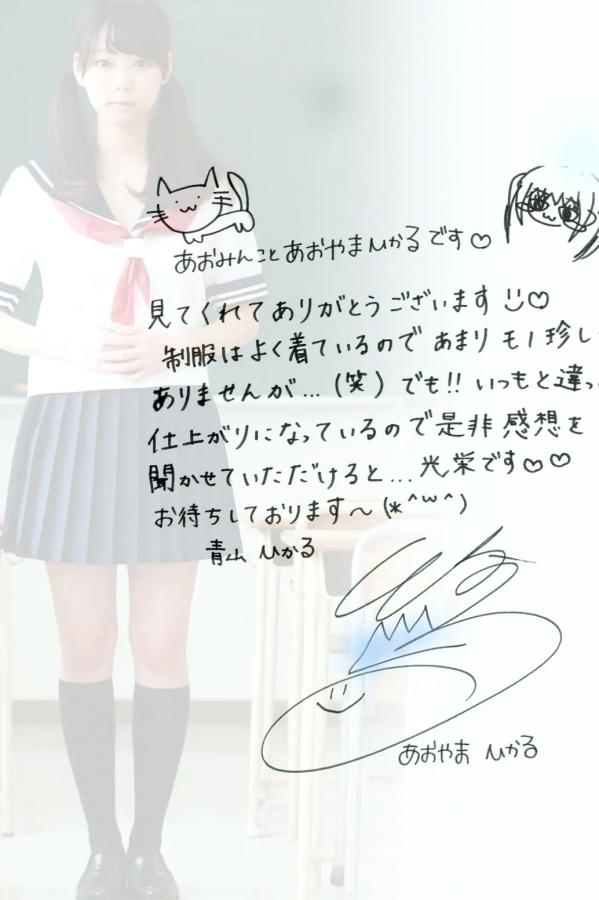 あおみんことあおやまひかるです♡
見てくれてありがとうございます♡
制服はよく着ているので あまり モノ珍し
ありませんが…(笑) でも!! いつもと違っ
仕上がりになっているので是非 感想を
聞かせていただけると… 光栄です♡♡
お待ちしております〜(*^ω^)
青山 ひかる
あおやま ひかる